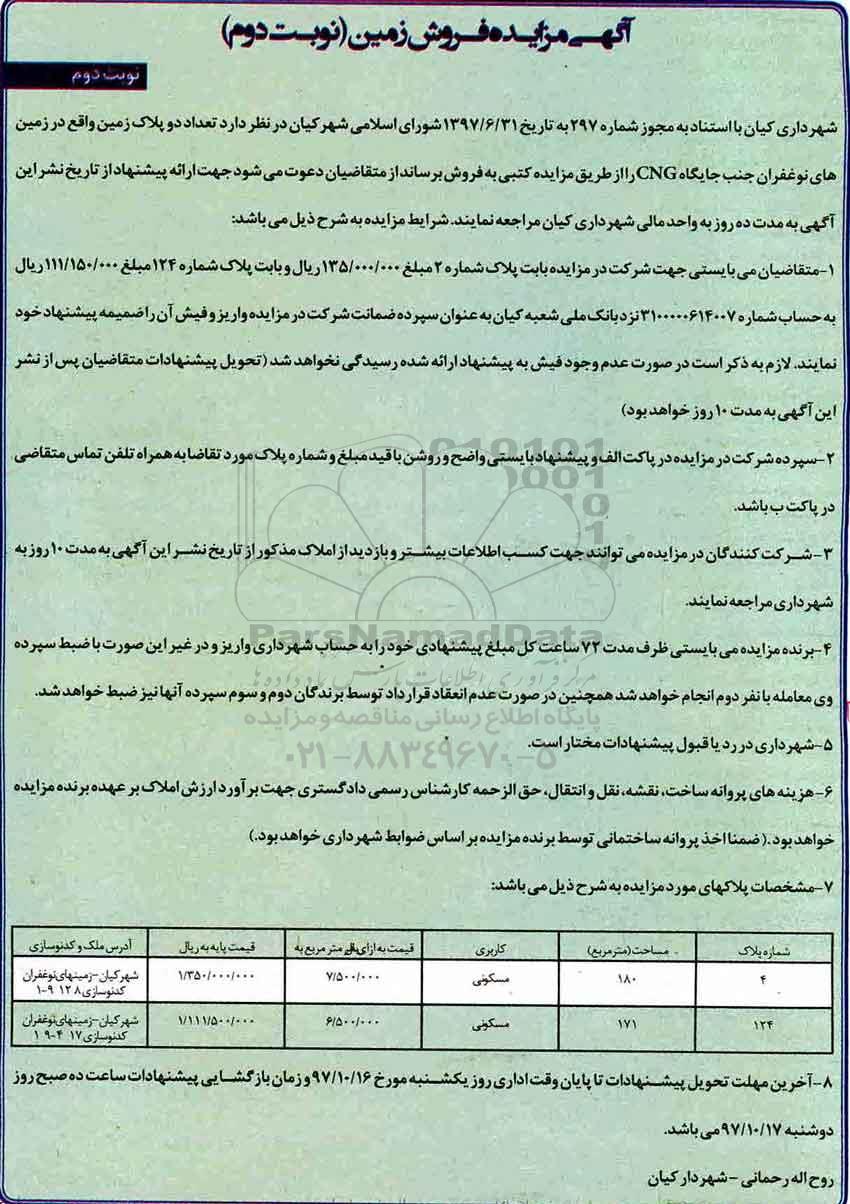 آگهی مزایده فروش زمین (نوبت دوم)
نوبت دوم
شهرداری کیان با استناد به مجوز شماره ۲۹۷ به تاریخ ۱۳۹۷/۶/۳۱ شورای اسلامی شهر کیان در نظر دارد تعداد دو پلاک زمین واقع در زمین
های نوغفران جنب جایگاه CNG را از طریق مزایده کتبی به فروش برساند از متقاضیان دعوت می شود جهت ارائه پیشنهاد از تاریخ نشر این
آگهی به مدت ده روز به واحد مالی شهرداری کیان مراجعه نمایند. شرایط مزایده به شرح ذیل می باشد:
۱-متقاضیان می بایستی جهت شرکت در مزایده بابت پلاک شماره ۲ مبلغ ۱۳۵/۰۰۰/۰۰۰ ریال و بابت پلاک شماره ۱۲۴ مبلغ ۱۱۱/۱۵۰/۰۰۰ ریال
به حساب شماره ۳۱۰۰۰۰۰۶۱۴۰۰۷ نزد بانک ملی شعبه کیان به عنوان سپرده ضمانت شرکت در مزایده واریز و فیش آن را ضمیمه پیشنهاد خود
نمایند. لازم به ذکر است در صورت عدم وجود فیش به پیشنهاد ارائه شده رسیدگی نخواهد شد (تحویل پیشنهادات متقاضیان پس از نشر
این آگهی به مدت ۱۰ روز خواهد بود)
۲-سپرده شرکت در مزایده در پاکت الف و پیشنهاد بایستی واضح و روشن با قید مبلغ و شماره پلاک مورد تقاضا به همراه تلفن تماس متقاضی
در پاکت ب باشد.
۳-شرکت کنندگان در مزایده می توانند جهت کسب اطلاعات بیشتر و بازدید از املاک مذکور از تاریخ نشر این آگهی به مدت ۱۰ روز به
شهرداری مراجعه نمایند.
ParsNamadData
۴-برنده مزایده می بایستی ظرف مدت ۷۲ ساعت کل مبلغ پیشنهادی خود را به حساب شهرداری واریز و در غیر این صورت با ضبط سپرده
مرکز فرآوری اطلاعات پارس نماد داده ها
وی معامله با نفر دوم انجام خواهد شد همچنین در صورت عدم انعقاد قرارداد توسط برندگان دوم و سوم سپرده آنها نیز ضبط خواهد شد.
پایگاه اطلاع رسانی مناقصه و مزایده
۵-شهرداری در رد یا قبول پیشنهادات مختار است.
۰۲۱-۸۸۳۴۹۶۷۰-۵
۶-هزینه های پروانه ساخت، نقشه، نقل و انتقال، حق الزحمه کارشناس رسمی دادگستری جهت برآورد ارزش املاک بر عهده برنده مزایده
خواهد بود.(ضمنا اخذ پروانه ساختمانی توسط برنده مزایده بر اساس ضوابط شهرداری خواهد بود.)
۷-مشخصات پلاکهای مورد مزایده به شرح ذیل می باشد:
شماره پلاک مساحت(مترمربع) کاربری قیمت به ازای هر متر مربع به قیمت پایه به ریال آدرس ملک و کدنوسازی
۴ ۱۸۰ مسکونی ۷/۵۰۰/۰۰۰ ۱/۳۵۰/۰۰۰/۰۰۰ شهر کیان-زمینهای نوغفران
کدنوسازی ۸ ۱۲ ۹-۱
۱۲۴ ۱۷۱ مسکونی ۶/۵۰۰/۰۰۰ ۱/۱۱۱/۵۰۰/۰۰۰ شهر کیان-زمینهای نوغفران
کدنوسازی ۱۷ ۴-۹ ۱
۸-آخرین مهلت تحویل پیشنهادات تا پایان وقت اداری روز یکشنبه مورخ ۹۷/۱۰/۱۶ و زمان بازگشایی پیشنهادات ساعت ده صبح روز
دوشنبه ۹۷/۱۰/۱۷ می باشد.
روح اله رحمانی -شهردار کیان